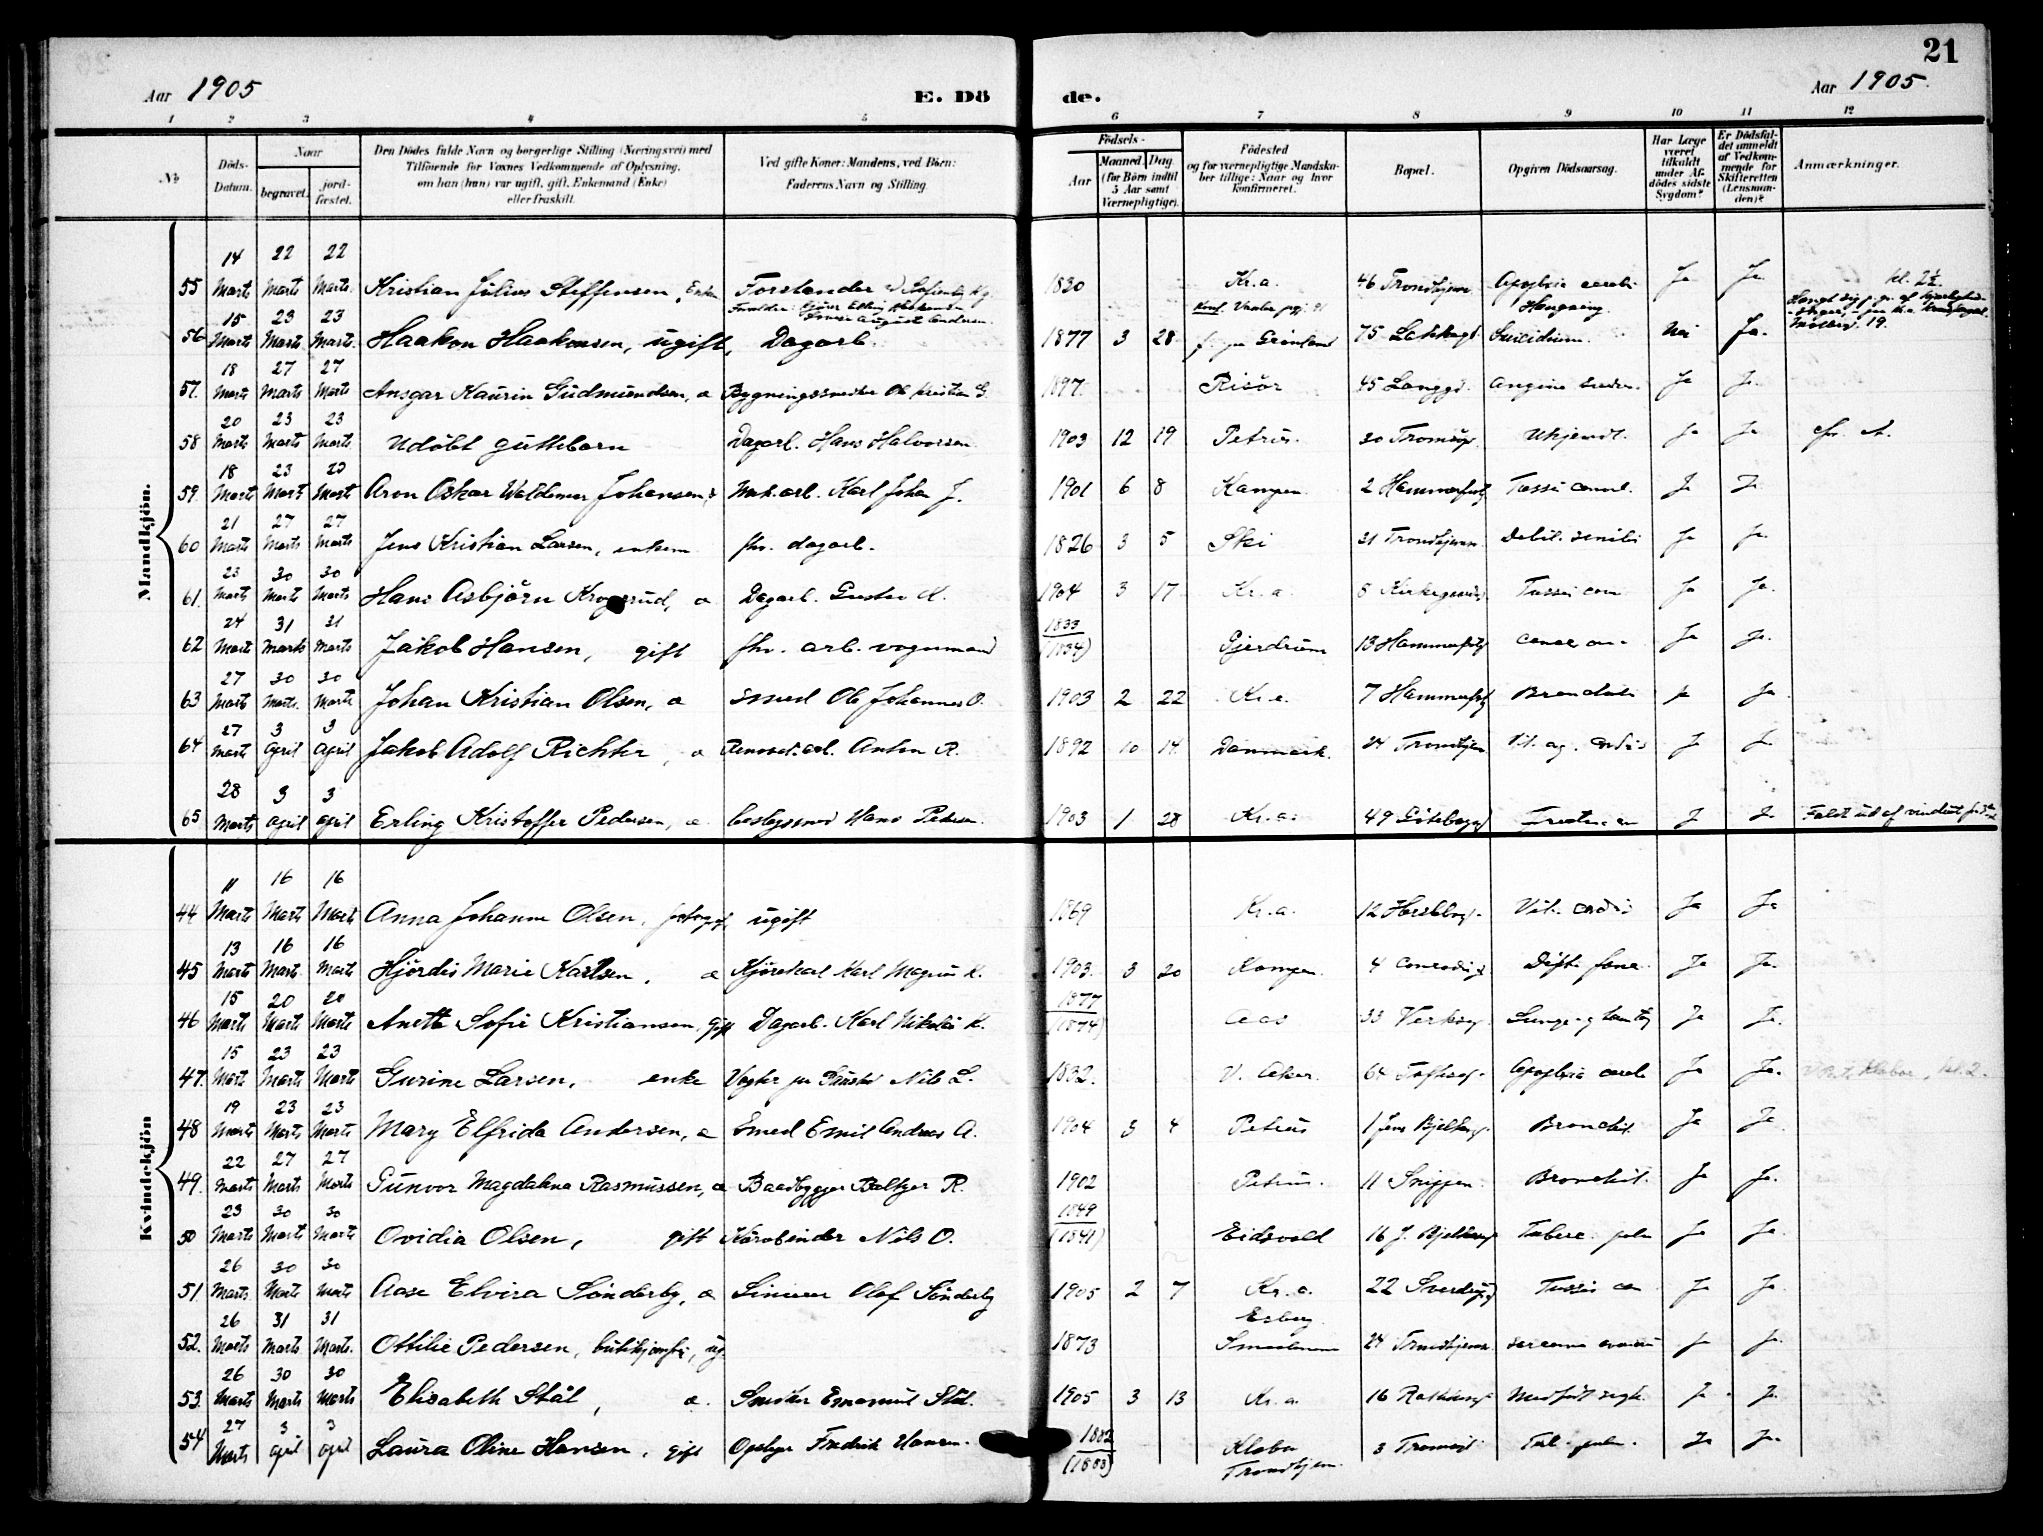 21
Aar 1905
E. Dö de.
Aar 1905.
1 2 3 4 5 6 7 8 9 10 11 12
No
Döds-Datum.
Naar
begravet.
jordfæstet.
Den Dödes fulde Navn og borgerlige Stilling (Næringsvei) med
Tilföiende for Voxnes Vedkommende af Oplysning,
om han (hun) var ugift, gift, Enkemand (Enke)
eller fraskilt.
Ved gifte Koner: Mandens, ved Börn:
Faderens Navn og Stilling.
Födsels-
Aar
Maaned. Dag.
(for Börn indtil
5 Aar samt
Værnepligtige).
Födested
og for værnepligtige Mandska-
ber tillige: Naar og hvor
konfirmeret.
Bopæl.
Opgiven Dödsaarsag.
Har Læge
været
tilkaldt
under Af-
dödes sidste
Sygdom?
Er Dödsfal-
det anmeldt
af Vedkom-
mende for
Skifteretten
(Lensman-
den)?
Anmærkninger.
Mandkjön.
55 14 Marts 22 Marts 22 Marts. Kristian Julius Steffensen, Enkem Forstander 1820 Kr.a. 46 Trondhjemsv Apoplxia cerebri Ja Ja kl. 2½
56 15 Marts 23 Marts. 23 Marts. Haakon Haakonsen, ugift, Dagarb. 1877 3 28 Grönland 75 Lakkegd Hængning Suicidium Nei Ja.
57. 18 Marts 27 Marts 27 Marts Ansgar Kaurin Gudmundsen, a Bygningssnedker Ole Kristian G. 1897. Risör 45 Langgd. Angina Ja Ja.
58 20 Marts 23 Marts 23 Marts. Udöbt guttebarn Dagarb. Hans Halvorsen 1903 12 19 Petrus. 20 Tromsög. Ukjendt. Ja Ja cfr. A.
59. 18 Marts 23 Marts 23 Marts Aron Oskar Waldemar Johansen, a Mek.arb. Karl Johan J. 1901 6 8 Kampen 2 Hammerfestg Tussis conv. Ja Ja
60 21 Marts 27 Marts 27 Marts Jens Kristian Larsen, enkem fhv. dagarb. 1826 3 5 Ski 31 Trondhjemsv. Debil. senilis Ja Ja.
61. 23 Marts 30 Marts 30 Marts Hans Asbjörn Krogsrud, a Dagarb. Gustav K. 1904 3 17 Kr.a. 8 Kirkegaardsg Tussis con Ja Ja.
62 24 Marts 31 Marts 31 Marts Jakob Hansen, gift fhv. arb. vognmand 1833 (1834) Gjerdrum 13 Hammerfestg Cancer Ja Ja.
63 27 Marts 30 Marts. 30 Marts Johan Kristian Olsen, a Smed Ole Johannes O. 1903 2 22 Kr.a. 7 Hammerfestg Bronchitis Ja Ja
64 27 Marts 3 April 3 April Jakob Adolf Richter, a Renovat.arb. Anton R. 1892 10 14 Danmark. 24 Trondhjemsv Vit. org. cordis Ja Ja
65 28 Marts 3 April 3 April Erling Kristoffer Pedersen, a. beslagsmed Hans Pedersen. 1903 1 28 Kr.a. 49 Götebogd Fractura Ja Ja Faldt ud af vinduet
Kvindekjön
44 11 Marts 16 Marts 16 Marts Anna Johanne Olsen, fotograf, ugift 1869 Kr.a. 12 Herslebsg. Vit. cordis Ja Ja
45 13 Marts 16 Marts. 16 Marts Hjördis Marie Karlsen, a Kjörekarl Karl Magnus K. 1903. 3 20 Kampen. 4 Conradisg Difteri Ja Ja.
46 15 Marts 20 Marts 20 Marts Anette Sofie Kristiansen, gift Dagarb. Karl Nikolai K. 1877 (1874) Aas 33 Verksg. Lunge- g Ja Ja.
47. 15 Marts 23 Marts 23 Marts Gurine Larsen, enke Vægter Nils L. 1832. V. Aker. 64 Toftesg. Apoplxia cereb Ja Ja. kl. 2.
48 19 Marts 23 Marts 23 Marts Mary Elfrida Andersen, a Smed Emil Andreas A. 1904 3 4 Petrus 1 Jens Bjelkesg. Bronchit. Ja Ja
49. 22 Marts 27 Marts 27 Marts Gunvor Magdalena Rasmussen, a Baadbygger Baltzer R. 1902 Petrus. 11 Snippen Bronchit. Ja Ja.
50 23 Marts 30 Marts 30 Marts Ovidia Olsen, gift Kurvbinder Nils O. 1849 (1841) Eidsvold 16 J. Bjelkesg Tuberc. pulm Ja Ja.
51. 26 Marts. 30 Marts 30 Marts Aase Elvira Sönderby, a Olaf Sönderby 1905 2 7 Kr.a. 22 Sverdrupsg Tussis con Ja Ja.
52. 26 Marts 31 Marts 31 Marts. Ottilie Pedersen, butikjomfru, ug. 1873 Smaalenene 24 Trondhjemsv. Ja Ja.
53. 26 Marts 30 Marts 30 Marts Elisabeth Stål, a. Snedker Emanuel Stål. 1905 3 13 Kr.a. 16 Rathkesg Medfödt svagh. Ja Ja.
54 27 Marts 3 April 3 April Laura Oline Hansen, gift Opsyn Fredrik Hansen. 1882 (1883) Klæbu Trondhjem. 3 Tromsög Tub. pulm. Ja Ja.